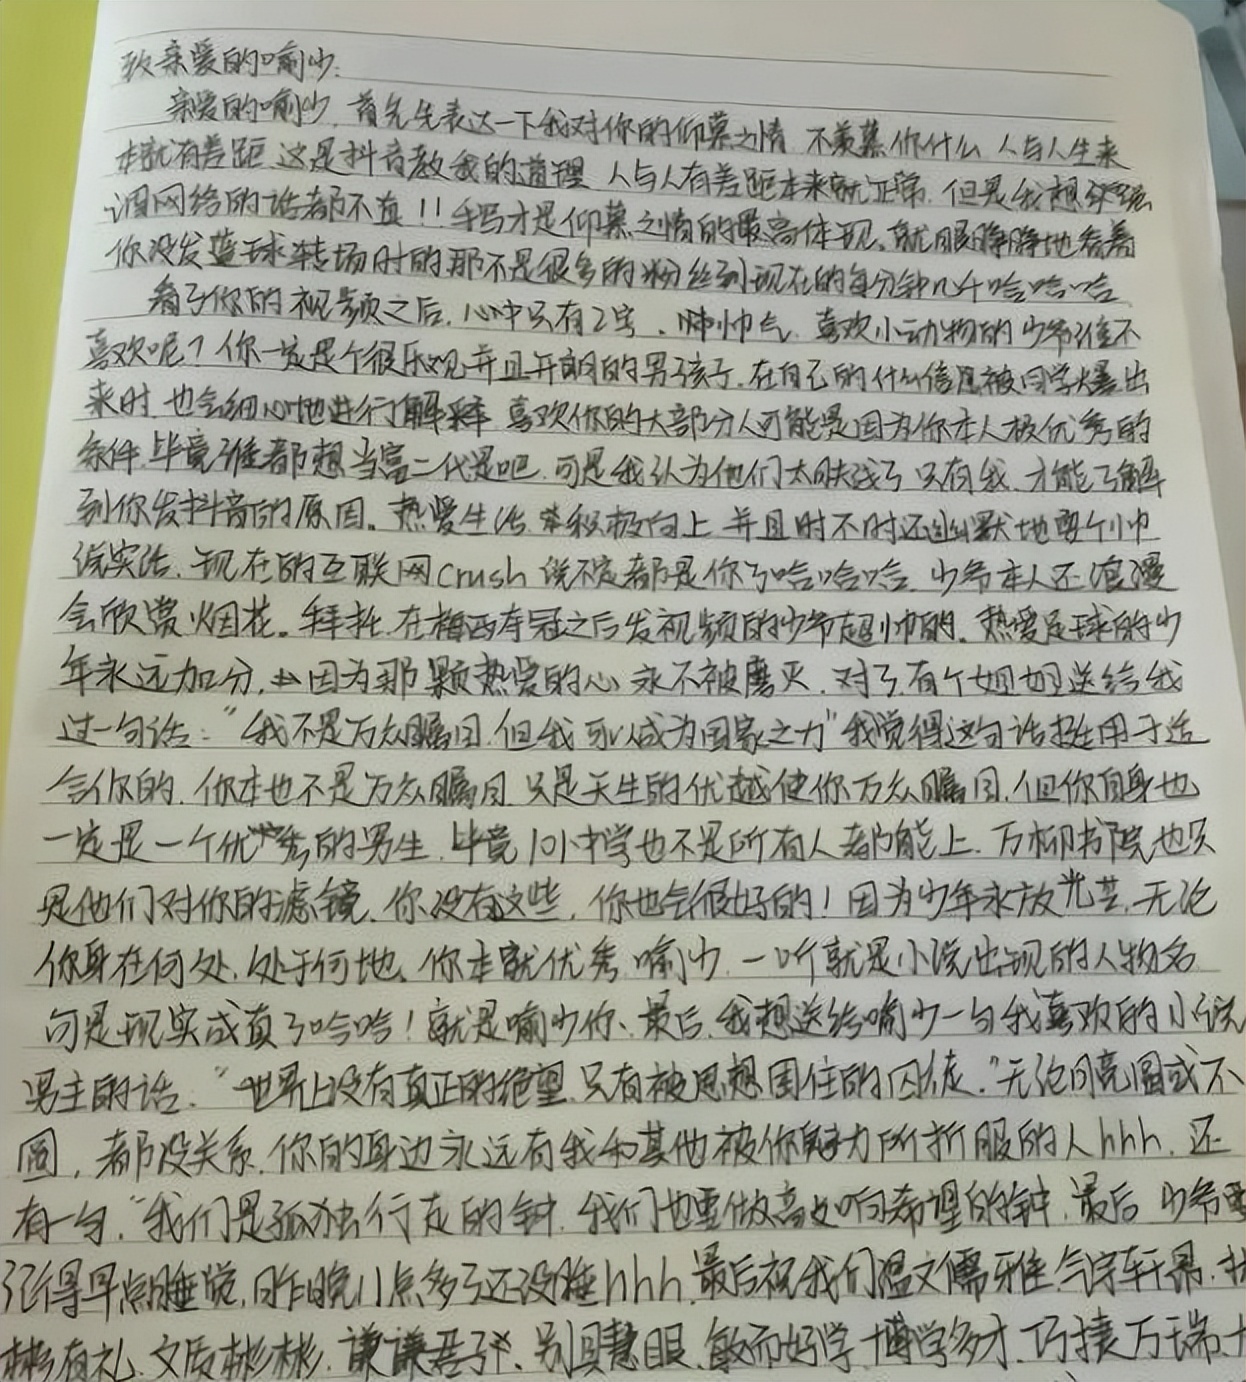 致亲爱的喻少:
亲爱的喻少,首先先表达一下我对你的仰慕之情 不羡慕你什么 人与人生来
本就有差距 这是抖音教我的道理 人与人有差距本来就正常.但是我想
网络的话都不直!!手写才是仰慕之情的最高体现、就眼睁睁地看着
你没发蓝球转场时的那不是很多的粉丝到现在的每分钟几千哈哈哈
看了你的视频之后,心中只有2字、帅帅气.喜欢小动物的少爷谁不
喜欢呢?你一定是个很乐观并且开朗的男孩子.在自己的什么信息被同学爆出
来时,也会细心地进行解释 喜欢你的大部分人可能是因为你本人极优秀的
条件.毕竟谁都想当富二代是吧.可是我认为他们太肤浅了 只有我、才能了解
到你发抖音的原因。热爱生活 积极向上 并且时不时还幽默地耍个帅
说实话、现在的互联网crush说不定都是你了哈哈哈.少爷本人还浪漫
会欣赏烟花。拜托.在梅西夺冠之后发视频的少爷超帅的。热爱足球的少
年永远加分,因为那颗热爱的心永不被磨灭.对了.有个姐姐送给我
过一句话:“我不是万众瞩目.但我可以成为国家之力”我觉得这句话挺用于适
合你的.你本也不是万众瞩目.只是天生的优越使你万众瞩目.但你自身也
一定是一个优秀的男生.毕竟101中学也不是所有人都能上.万柳书院也只
是他们对你的滤镜.你没有这些,你也会很好的!因为少年永放光芒.无论
你身在何处.处于何地.你本就优秀.喻少,一听就是小说出现的人物名
可是现实成真了哈哈!就是喻少你、最后,我想送给喻少一句我喜欢的小说
男主的话、“世界上没有真正的绝望.只有被思想困住的囚徒.”无论月亮圆或不
圆,都没关系.你的身边永远有我和其他被你魅力所折服的人hhh.还
有一句,“我们是孤独行走的钟.我们也要做高响希望的钟.最后 少爷要
记得早点睡觉,昨晚11点多了还没睡hhh.最后祝我们温文儒雅.气宇轩昂.
彬有礼.文质彬彬.谦谦君子.别具慧眼.敏而好学 博学多才.巧接万端